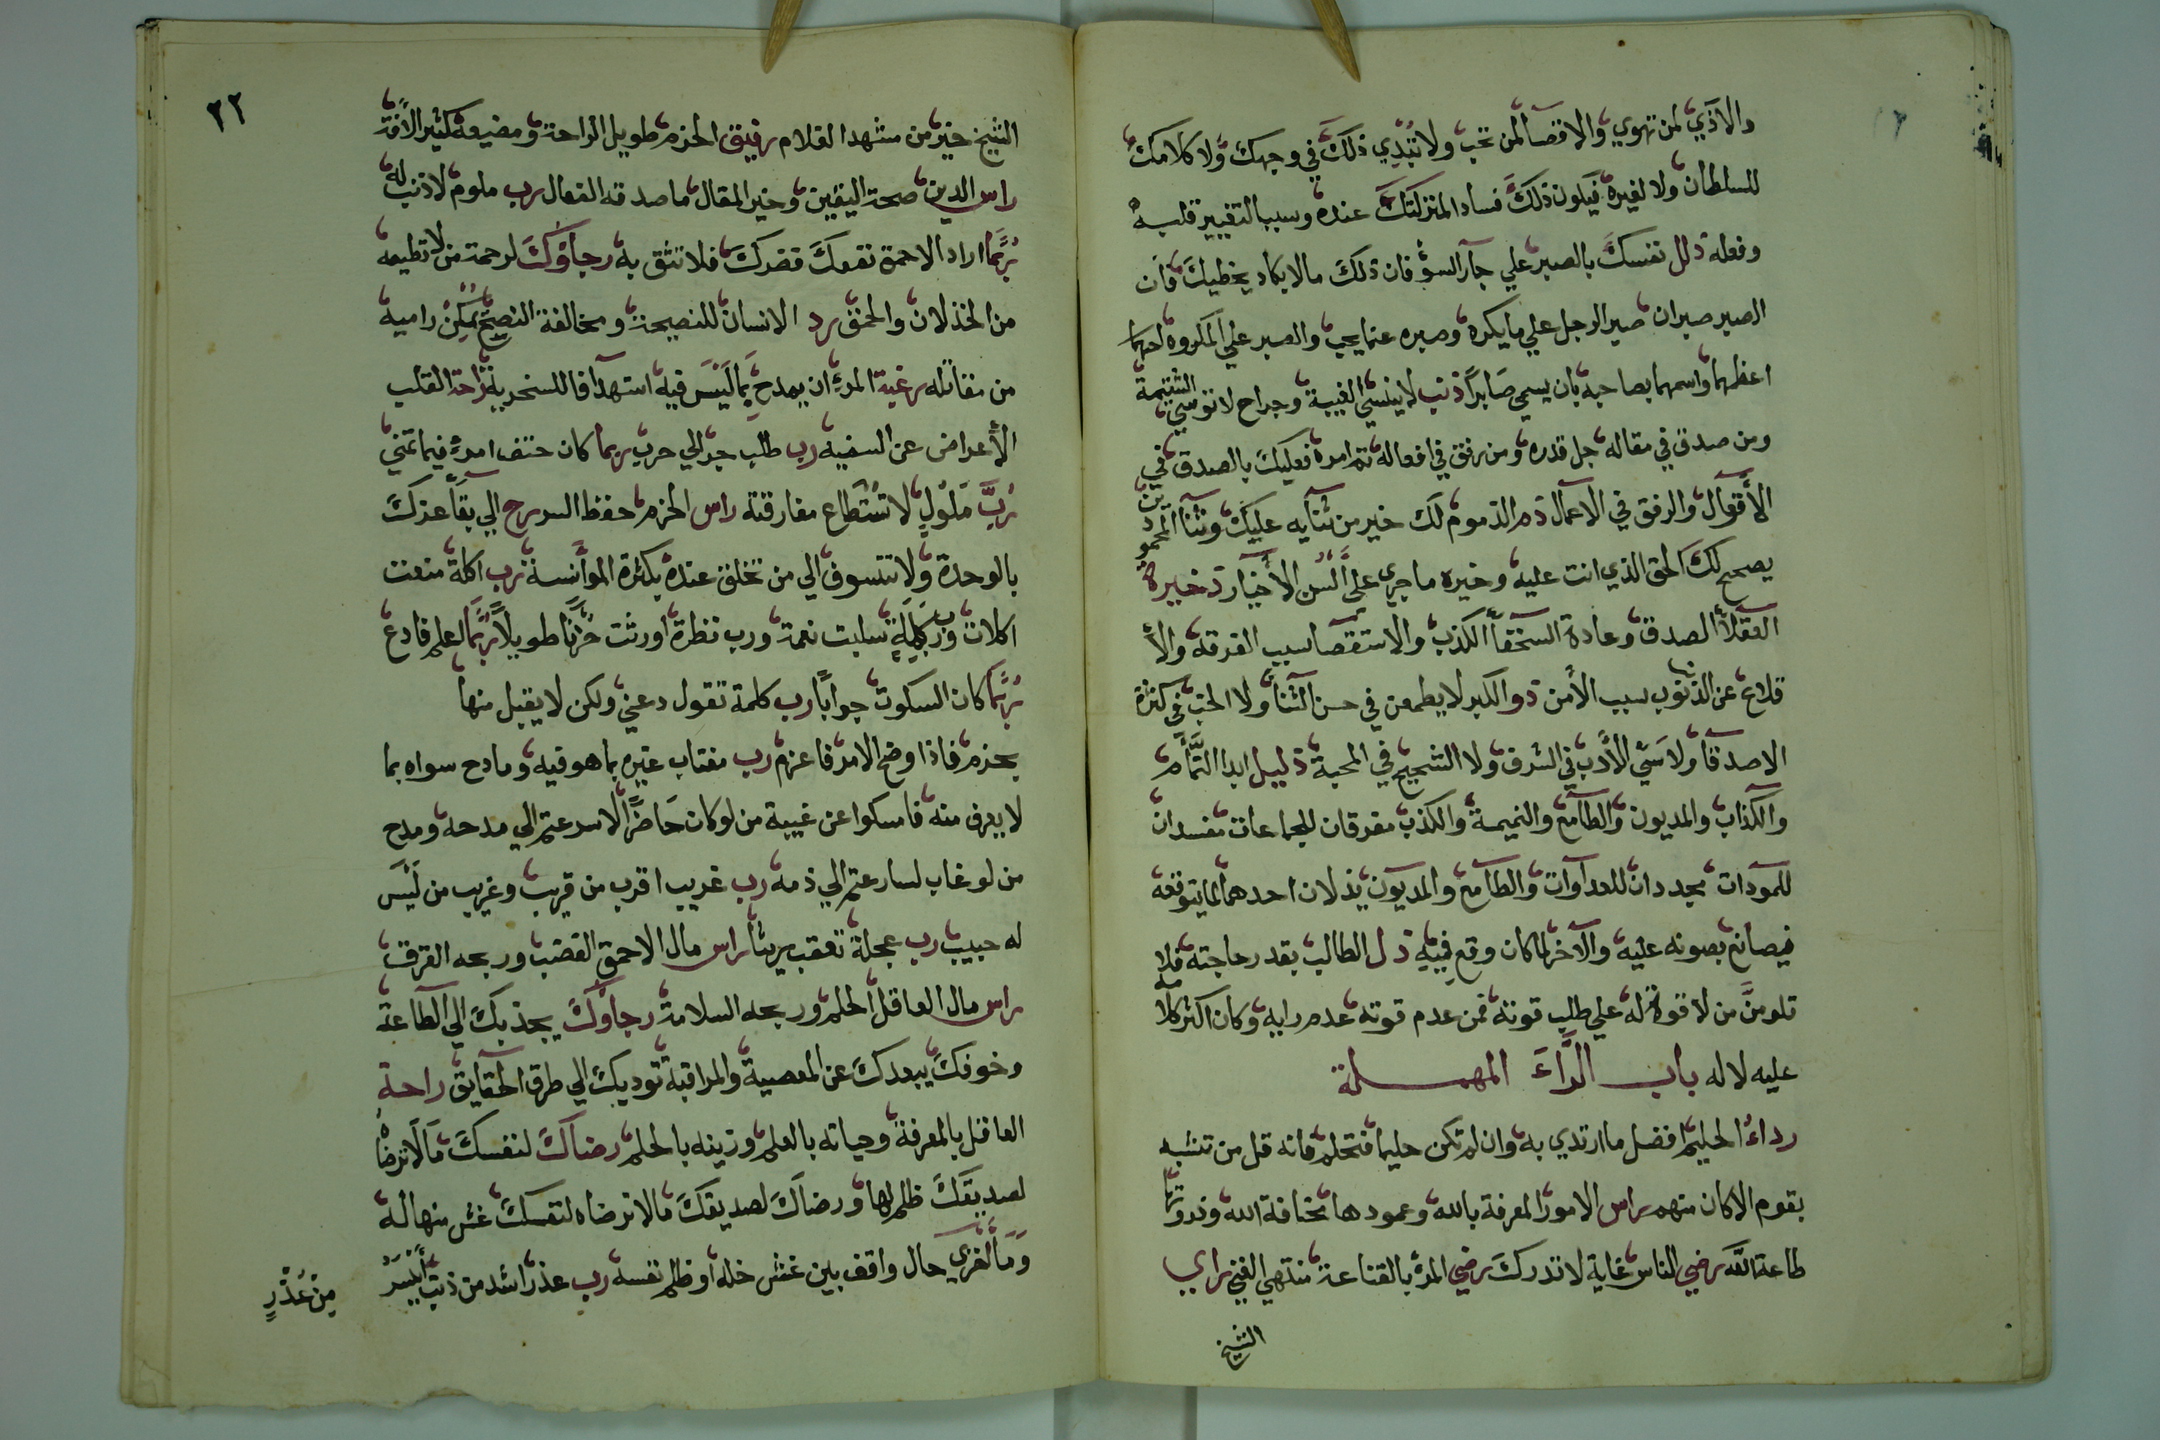 والآذي لمن تهوي والاقصا لمن تحب ولا تبدي ذلك في وجهك ولا كلامك
للسلطان ولا لغيره فيكون ذلك فسادا لمنزلتك عنده وسببا لتغيير قلبه
وفعله ذلل نفسك بالصبر علي جآر السؤ فان ذلك مالا يكاد يخطيك فان
الصبر صبران صبر الرجل علي ما يكره وصبره عما يحب والصبر علي المكروه احبهما
اعظمهما واسمهما بصاحبه بان يسمي صابرا ذنب لا ينسي الغيبة وجراح لا توسي الشتيمة
ومن صدق في مقاله جل قدره ومن رفق في افعاله تم امره فعليك بالصدق في
الأقوال والرفق في الاعمال ذم المذموم لك خير من ثنآيه عليك وثنآ المحمودين
يصحح لك الحق الذي انت عليه وخيره ما جري على ألسن الأخيار ذخيرة
العقلآ الصدق وعادة السخفآ الكذب والاستقصا سبب الفرقة والأ
قلاع عن الذنوب سبب الأمن ذو الكبر لا يطمعن في حسن الثنآ ولا الخب في كثرة
الاصدقآ ولا سي الأدب في الشرف ولا الشحيح في المحبة ذليل ابدا النمام
والكذاب والمديون والطامع والنميمة والكذب مفرقان للجماعات مفسدان
للمودات مجددان للعداوات والطامع والمديون يذلان احدهما لما يتوقعه
فيصانع بصونه عليه والآخر لما كان وقع فيه ذل الطالب بقدر حاجته فلا
تلومن من لا قوة له علي طلب قوته فمن عدم قوته عدم رايه وكان اكثر كلامه
عليه لا له باب الرآء المهملة
رداء الحليم افضل ما ارتدي به وان لم تكن حليما فتحلم فانه قل من تشبه
بقوم الا كان منهم راس الامور المعرفة بالله وعمودها مخافة الله وذروتها
طاعة الله رضي الناس غاية لا تدرك رضي المرء بالقناعة منتهي الغني راي
الشيخ
٢٢
الشيخ خير من مشهد الغلام رفيق الحزم طويل الراحة ومضيعه كثير الآفة
راس الدين صحة اليقين وخير المقال ما صدقه الفعال رب ملوم لا ذنب له
ربما اراد الاحمق نفعك فضرك فلا تثق به رجاؤك لرحمة من لا تطيعه
من الخذلان والحمق رد الانسان للنصيحة ومخالفة النصيح يمكن راميه
من مقاتله رغبة المرء ان يمدح بما ليس فيه استهدافا للسخرية راحة القلب
الأعراض عن السفيه رب طلب جر الي حرب ربما كان حتف امرء فيما تمني
رب ملول لا تستطاع مفارقته راس الحزم حفظ السر رح الي بقآ عزك
بالوحدة ولا تتسوف الي من تخلق عنده بكثرة الموآنسة رب اكلة منعت
اكلات ورب كلمة سلبت نعمة ورب نظرة اورثت حزنا طويلا ربما لعلم فادع
ربما كان السكوت جوابا رب كلمة تقول دعني ولكن لا يقبل منها
بحزم فاذا وضح الامر فاعزم رب مغتاب غيره بما هو فيه ومادح سواه بما
لا يعرف منه فامسكوا عن غيبة من لو كان حاضرا لاسرعتم الي مدحه ومدح
من لو غاب لسارعتم الي ذمه رب غريب اقرب من قريب وغريب من ليس
له حبيب رب عجلة تعقب ريثا راس مال الاحمق الغضب وربحه الفرق
راس مال العاقل الحلم وربحه السلامة رجاؤك يجذبك الي الطاعة
وخوفك يبعدك عن المعصية والمراقبة توديك الي طرق الحقايق راحة
العاقل بالمعرفة وحياته بالعلم وزينه بالحلم رضاك لنفسك مالا ترضاه
لصديقك ظلم لها ورضاك لصديقك مالا ترضاه لنفسك غش منها له
حال واقف بين غش خله او ظلم نفسه رب عذر اشد من ذنب أيسر
من عذر